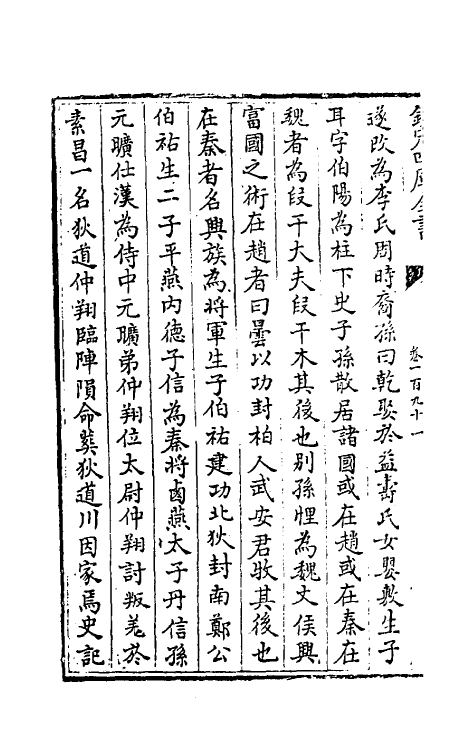 欽定四庫全書
卷一百九十一
遂改為李氏周時裔孫曰乾娶於益壽氏女嬰敷生子
耳字伯陽為柱下史子孫散居諸國或在趙或在秦在
魏者為段干大夫段干木其後也别孫悝為魏文侯興
富國之術在趙者曰曇以功封柏人武安君牧其後也
在秦者名興族為將軍生子伯祐建功北狄封南鄭公
伯祐生二子平燕内德子信為秦將鹵燕太子丹信孫
元曠仕漢為侍中元曠弟仲翔位太尉仲翔討叛羌於
素昌一名狄道仲翔臨陣隕命葬狄道川因家焉史記